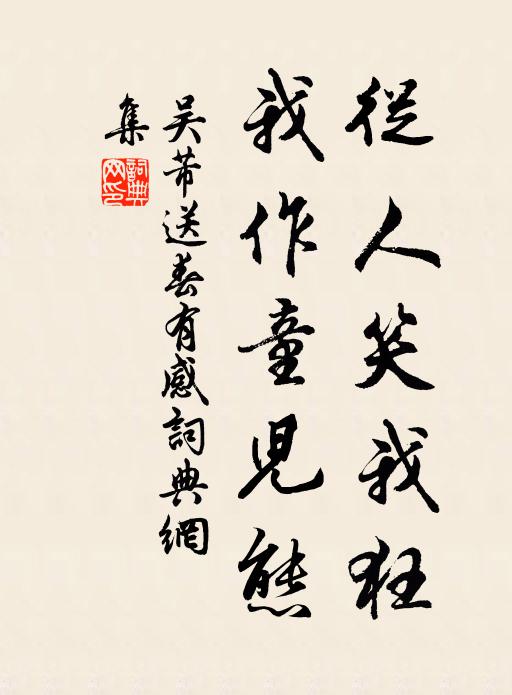 從人笑我狂
我作童兒態
吴芾送春有感詞典網
集
詞典網印